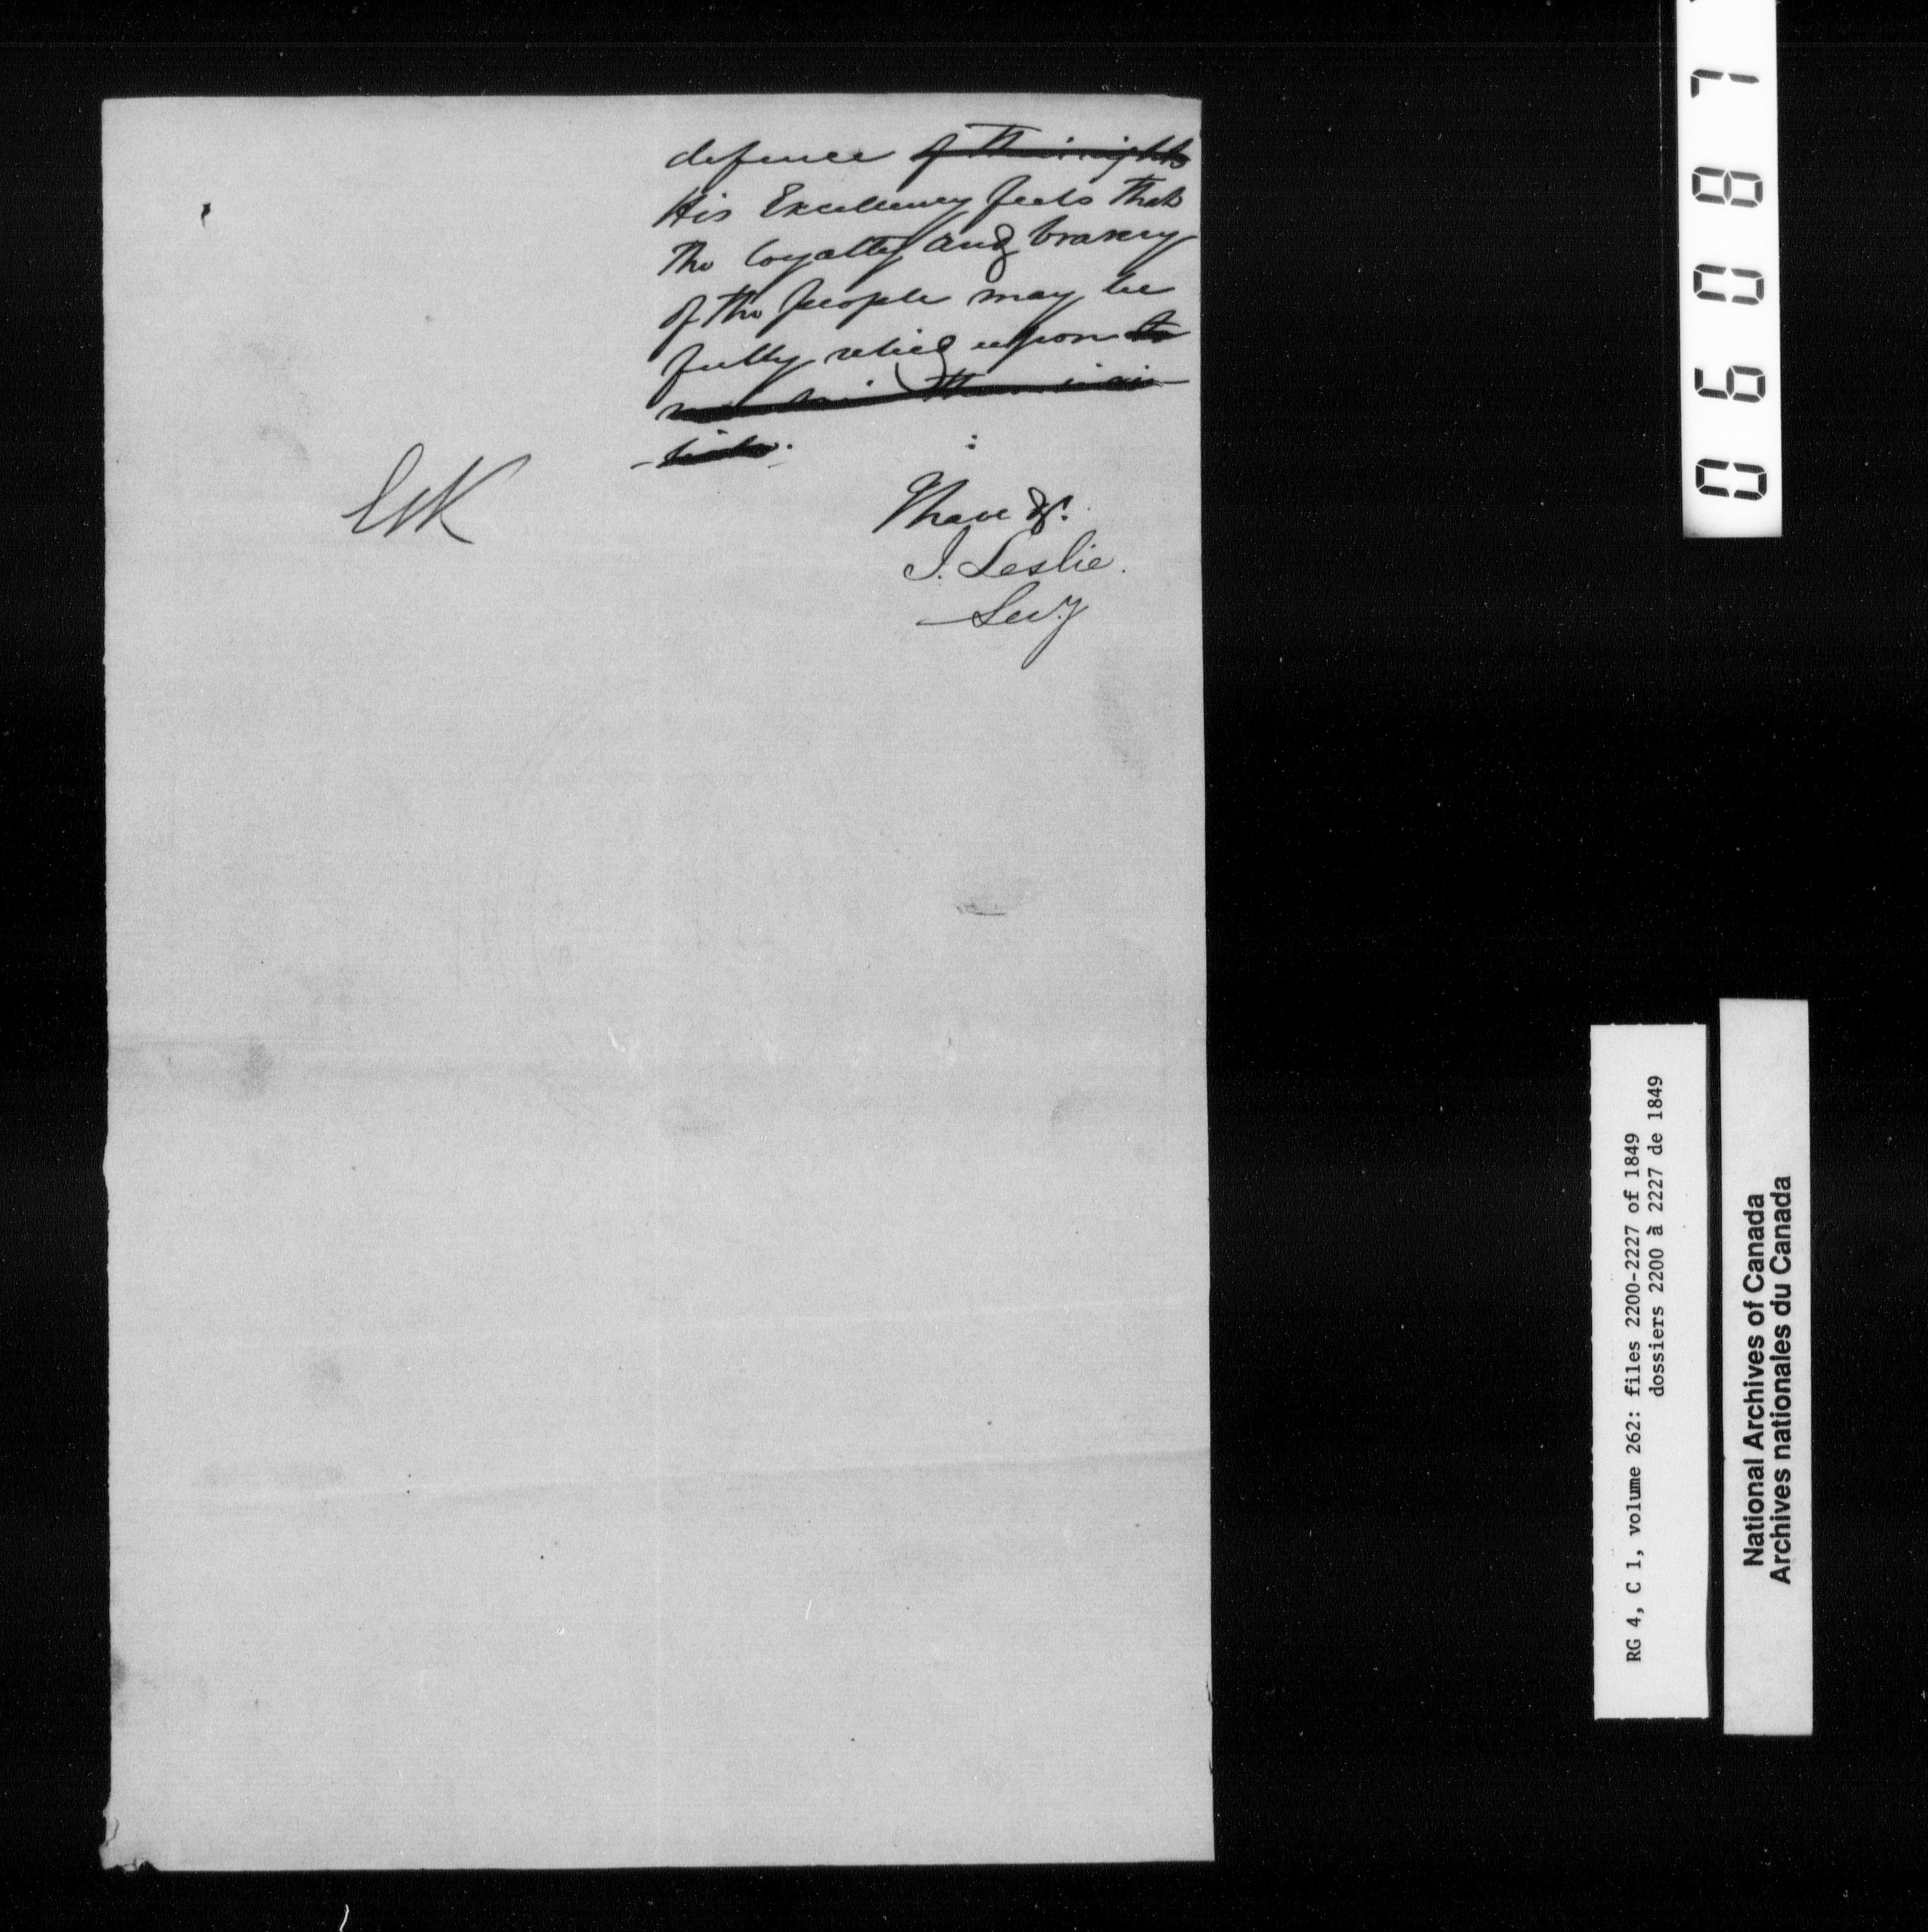 defence of their rights
His Excellency feels that
the loyalty and bravery
of the people may be
fully relied upon to
I have &c.
J. Leslie.
Secy
06087
RG 4, C 1, volume 262: files 2200-2227 of 1849
dossiers 2200 à 2227 de 1849
National Archives of Canada
Archives nationales du Canada